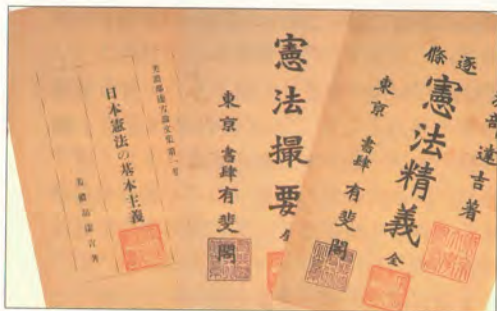 部達吉著
逐條
憲法精義 全
東京 書肆 有斐閣
憲法撮要 全
東京 書肆 有斐閣
美濃部達吉論文集第一
日本憲法の基本主義
美濃部達吉著